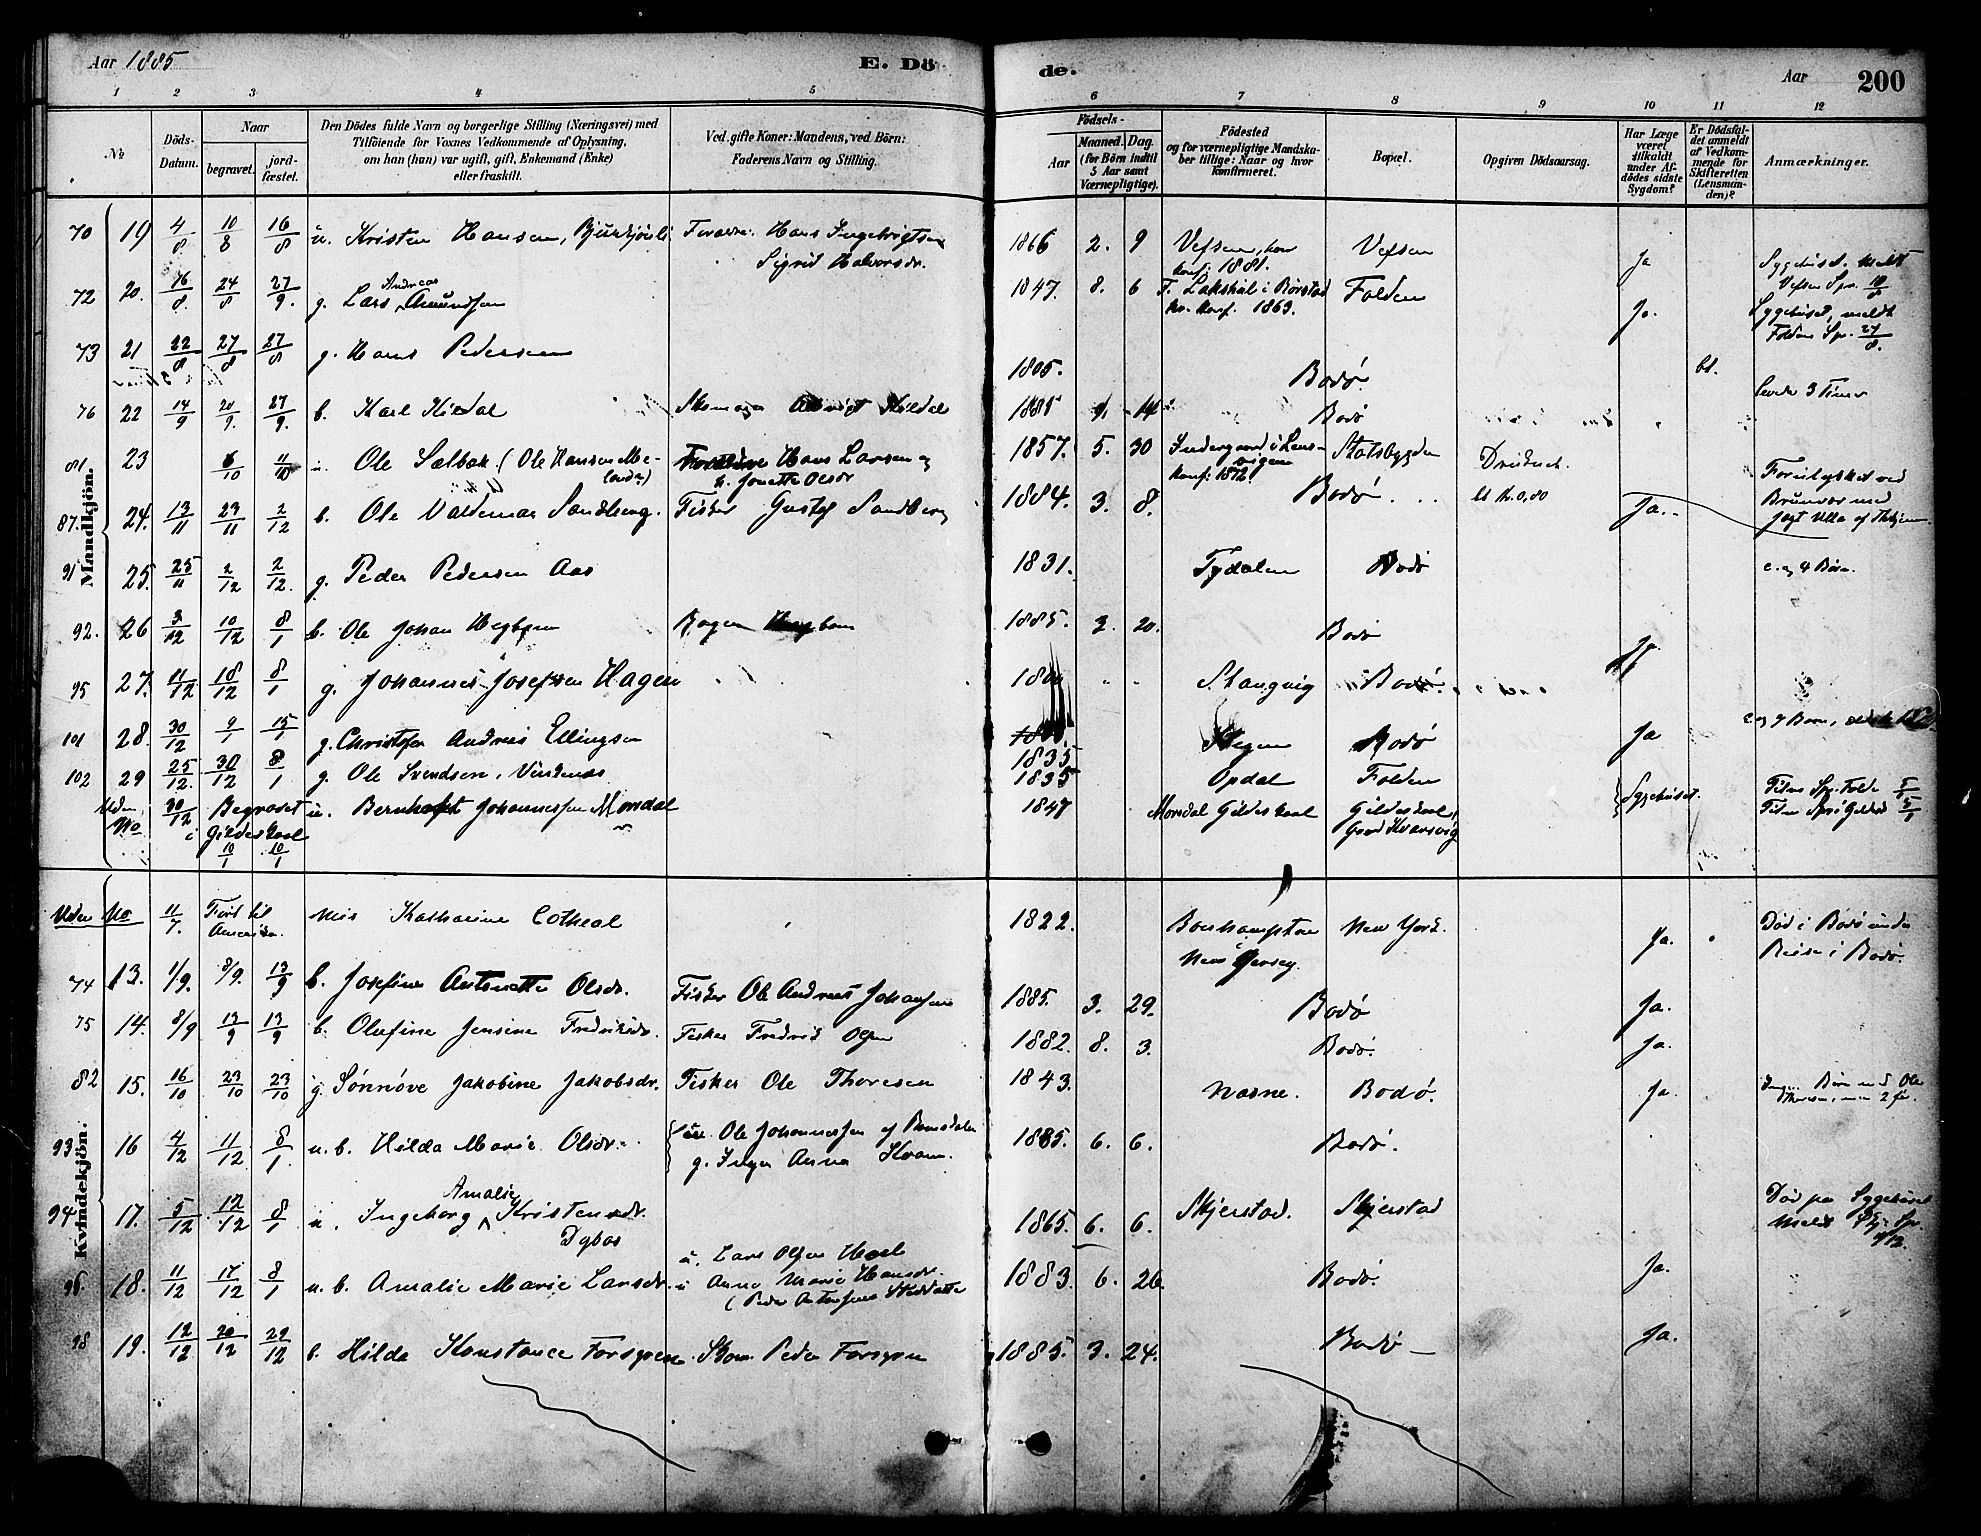 Aar 1885
E. Dö
de.
Aar
200
1 2 3 4 5 6 7 8 9 10 11 12
No
Döds-Datum.
Naar
begravet.
jord-fæstet.
Den Dödes fulde Navn og borgerlige Stilling (Næringsvei) med
Tilföiende for Voxnes Vedkommende af Oplysning,
om han (hun) var ugift, gift, Enkemand (Enke)
eller fraskilt.
Ved gifte Koner: Mandens, ved Börn:
Faderens Navn og Stilling.
Födsels-
Aar
Maaned. Dag.
(for Börn indtil
5 Aar samt
Værnepligtige).
Födested
og for værnepligtige Mandska-
ber tillige: Naar og hvor
konfirmeret.
Bopæl.
Opgiven Dödsaarsag.
Har Læge
været
tilkaldt
under Af-
dödes sidste
Sygdom?
Er Dödsfal-
det anmeldt
af Vedkom-
mende for
Skifteretten
(Lensman-
den)?
Anmærkninger.
Mandkjön.
70 19 4/8 10/8 16/8 u. Kristen Hansen, Forældre: Hans Ingebrigtsen
Sigrid Halvorsdr.
1866 2. 9 Vefsen, konf. 1881. Vefsen Ja Sygehuset. meldt
Vefsen Spr. 10/8
72 20. 16/8 24/8 27/9. g. Lars Andreas Amundsen 1847. 8. 6 Folden Ja. Sygehuset, meldt
konf. 1863. Foldens Spr. 27/8.
73 21 22/8 27/8 27/8 g. Hans Pedersen 1805. Bodø bl.
levde 3 Timer
76 22 14/9 20/9. 27/9. b. Karl Kildal Skomager Kildal 1885 14 Bodø
81 23 6/10 11/10 u. Ole Sælbak (Ole Hansen Me-
landr) Forældre Hans Larsen og
h. Jonette Olsdr
1857. 5. 30 konf. 1872 Statsbygden Druknet. Forulykket ved
Brunvær med
Jagt Ulla af Thhjem.
87. 24. 13/11 23/11 2/12 b. Ole Valdemar Sandberg. Fisker Gustaf Sandberg 1884. 3. 8. Bodø bl Kr. 0,80 Ja.
91 25. 25/11 2/12 2/12. g. Peder Pedersen Aas 1831. Tydalen Bodø e. og 4 Børn.
92. 26 3/12 10/12 8/1 b. Ole Johan Hegbom Bager Hegbom 1885. 3. 20. Bodø
95 27. 11/12 18/12 8/1 g. Johannes Josefsen Hagen Stangvig Bodø.
101 28. 30/12 9/1 15/1 g. Christofer Andreas Ellingsen 1835 Stegen Bodø Ja
102 29 25/12. 30/12 8/1 g. Ole Svendsen, Vindenæs 1835 Opdal Folden Sygehuset.
Uden No 30/12 Begravet i Gildeskaal 10/1 10/1 u. Bernhoft Johannessen Morsdal 1847 Morsdal Gildeskaal Gildeskaal,
Gaard Kvarsvig
Kvindekjön.
Uden No 11/7. Ført til Amerika. Mis Katharine Cotheal 1822. New Jersey. New York. Ja. Død i Bodø under
Reise i Bodø.
74 13. 1/9. 8/9. 13/9 b. Josefine Antonette Olsdr. Fisker Ole Andreas Johansen 1885. 3. 29. Bodø Ja.
75 14. 8/9 13/9 13/9 b. Olufine Jensine Fredriksdr. Fisker Fredrik Olsen 1882. 8. 3. Bodø. Ja.
82 15. 16/10 23/10 23/10 g. Sønnøve Jakobine Jakobsdr. Fisker Ole Thoresen 1843. Næsne. Bodø. Ja Ingen Børn med Ole
Thoresen, men 2 før.
93 16 4/12 11/12 8/1. u. b. Hilda Marie Olsdr. u. Ole Johannessen af Ramsdalen
g. Inger Anna Kvam.
1885. 6. 6. Bodø.
94 17. 5/12 12/12 8/1 u. Ingeborg Amalie Kristensdr.
Dybos
1865. 6. 6. Skjerstad. Skjerstad Død paa Sygehuset
Meldt Skj. Spr.
96 18. 11/12 17/12 8/1 u. b. Amalie Marie Larsdr. u. Lars Olsen
u Anna Marie Hansdr.
1883. 6. 26. Bodø. Ja.
98 19. 12/12 20/12 29/12 b. Hilda Konstance Forsgren. Skom. Peder Forsgren 1885. 3. 24. Bodø Ja.